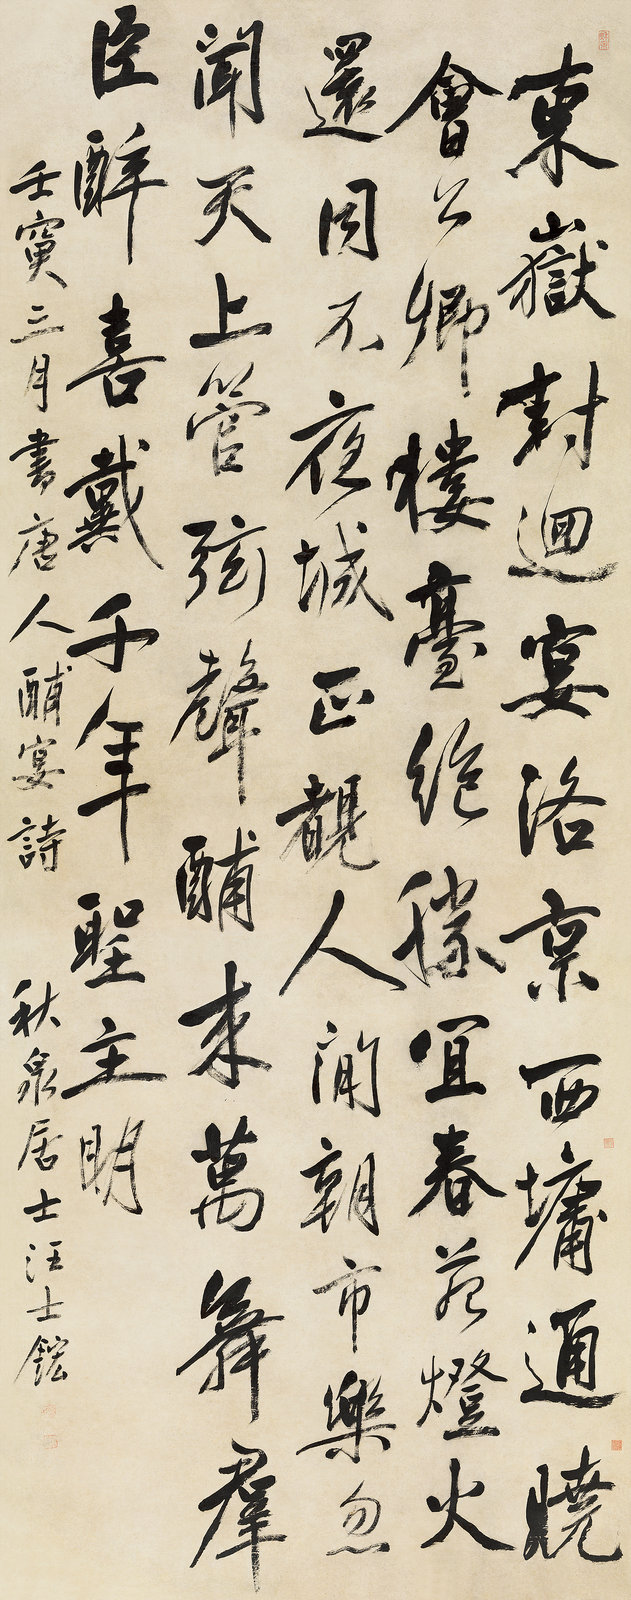 東嶽對迴宴洛京西墉通曉
會公卿樓臺絶勝宜春苑燈火
還同不夜城正覩人間朝市樂忽
聞天上管弦聲酺来萬舞群
臣醉喜戴千年聖主明
壬寅三月書唐人酺宴詩 秋泉居士汪士鋐